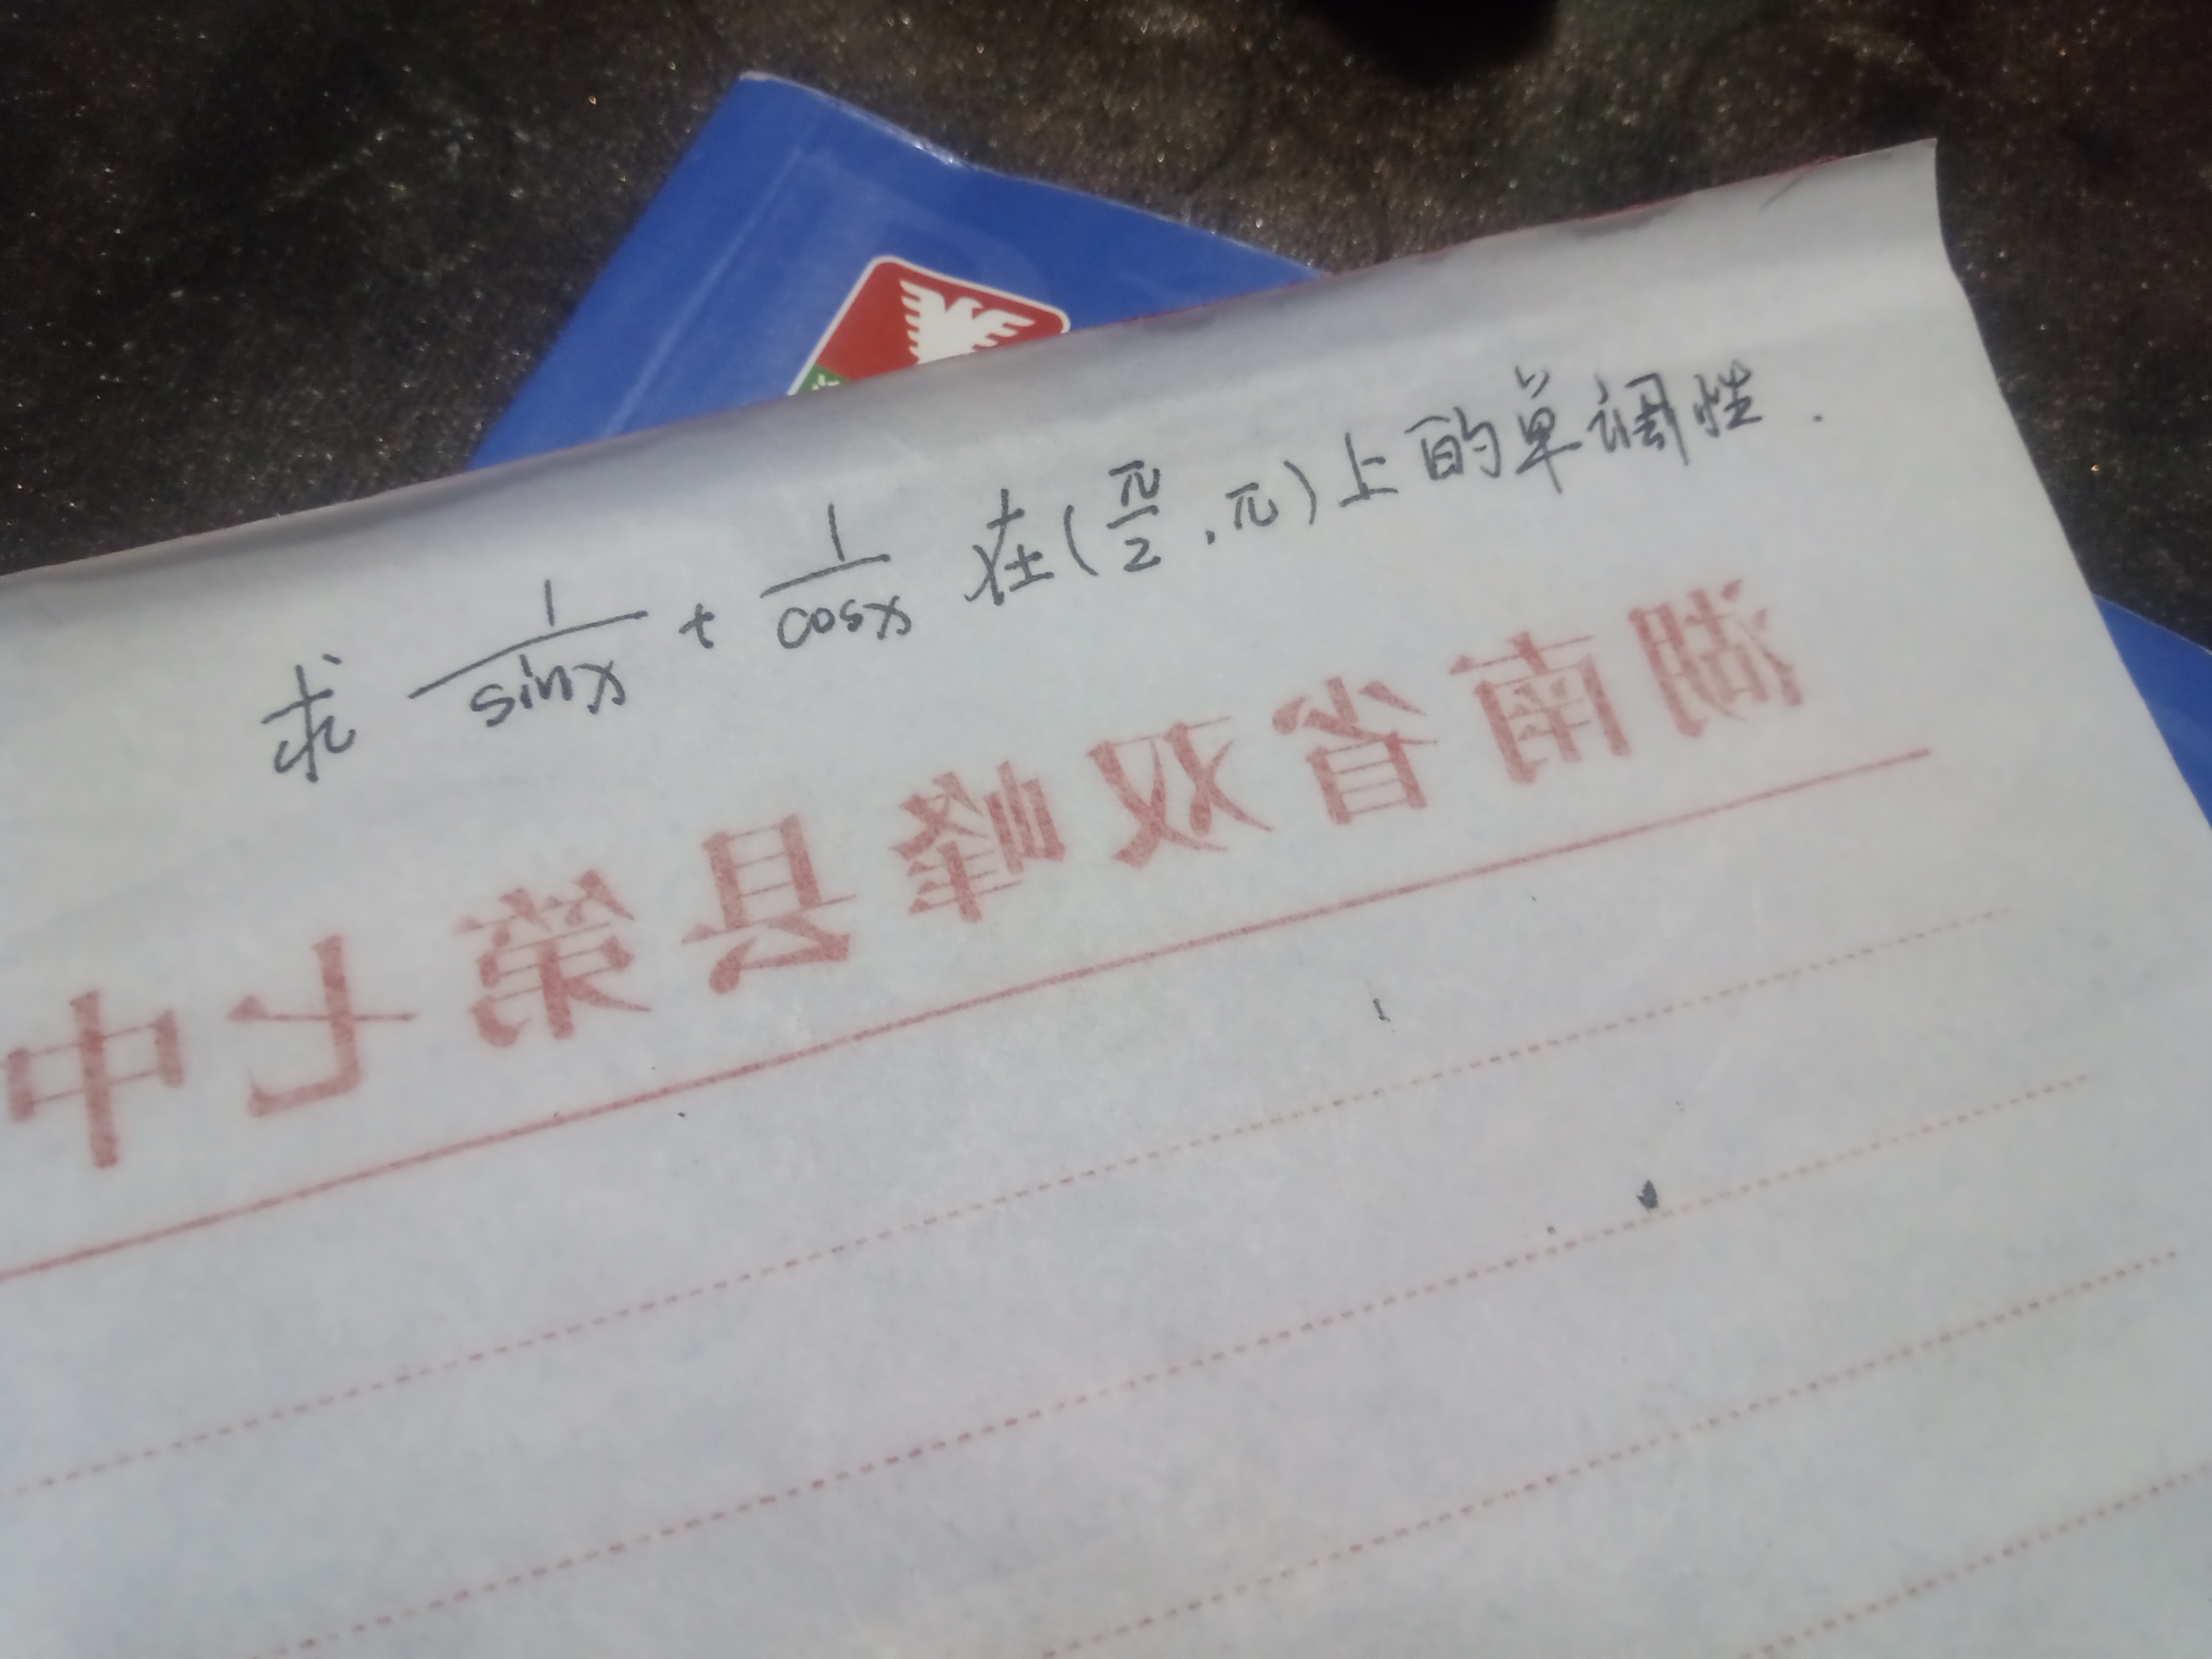 求 1/sinx + 1/cosx 在(π/2, π)上的单调性.
湖南省双峰县第七中